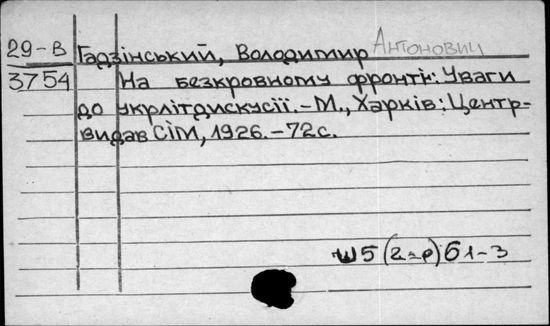 29-В Гадзінський, Володимир Антонович
3754 На безкровному фронті: Уваги
до укрлітдискусії.-М., Харків: Центр-
видав СІМ, 1926.-72с.
Ш5(2=р)61-3